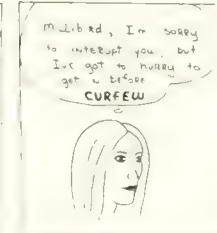 I'm SORRY
to interupt you, but
I've got to HURRY to
get before
CURFEW